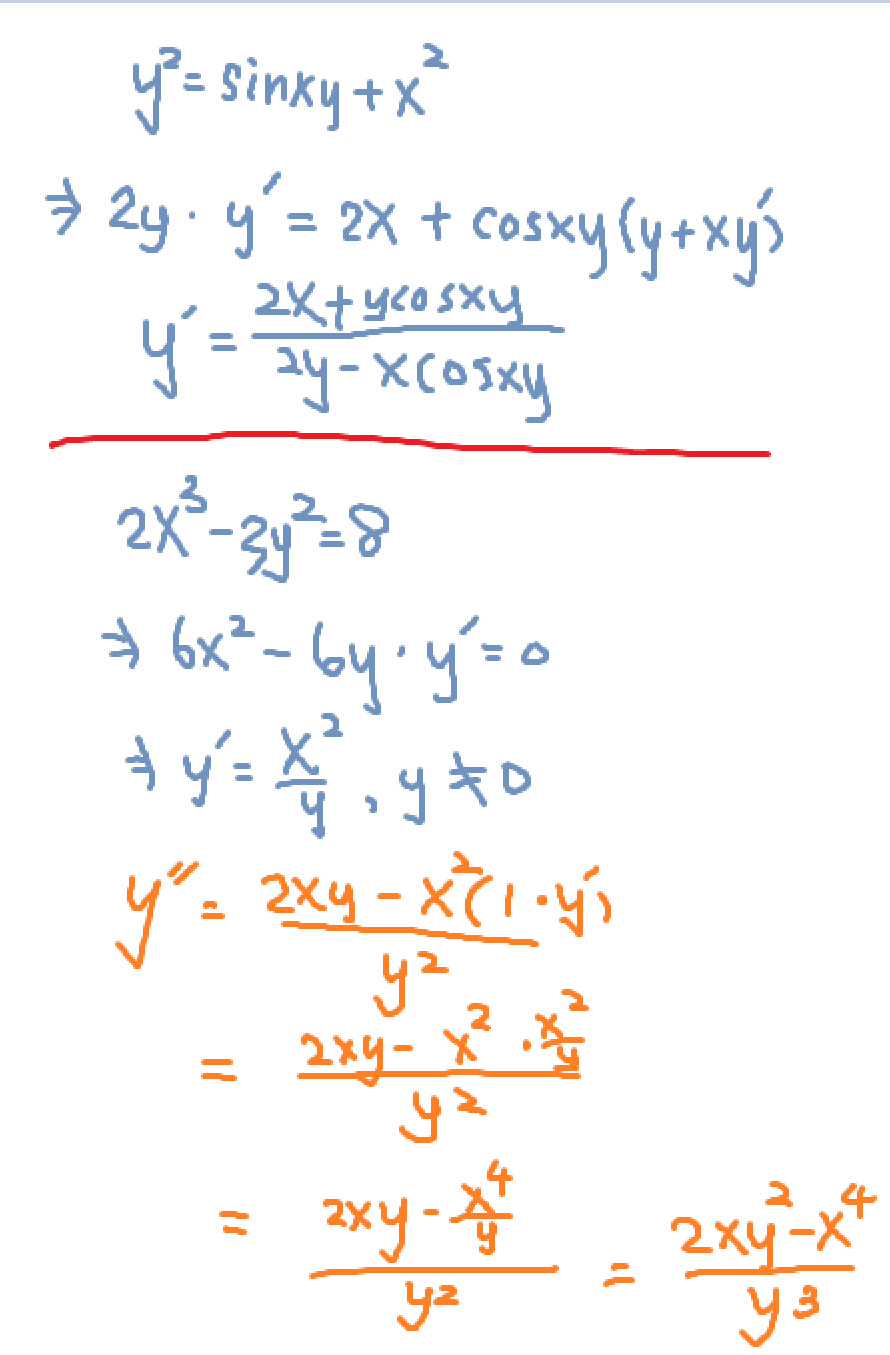 y² = sinxy + x²
⇒ 2y · y′ = 2x + cosxy(y+xy′)
y′ = (2x+ycosxy)/(2y-xcosxy)
2x³-3y²=8
⇒ 6x² - 6y · y′ = 0
⇒ y′ = x²/y , y ≠ 0
y″ = (2xy - x²(1·y′))/y²
= (2xy - x² · x²/y)/y²
= (2xy - x⁴/y)/y² = (2xy²-x⁴)/y³